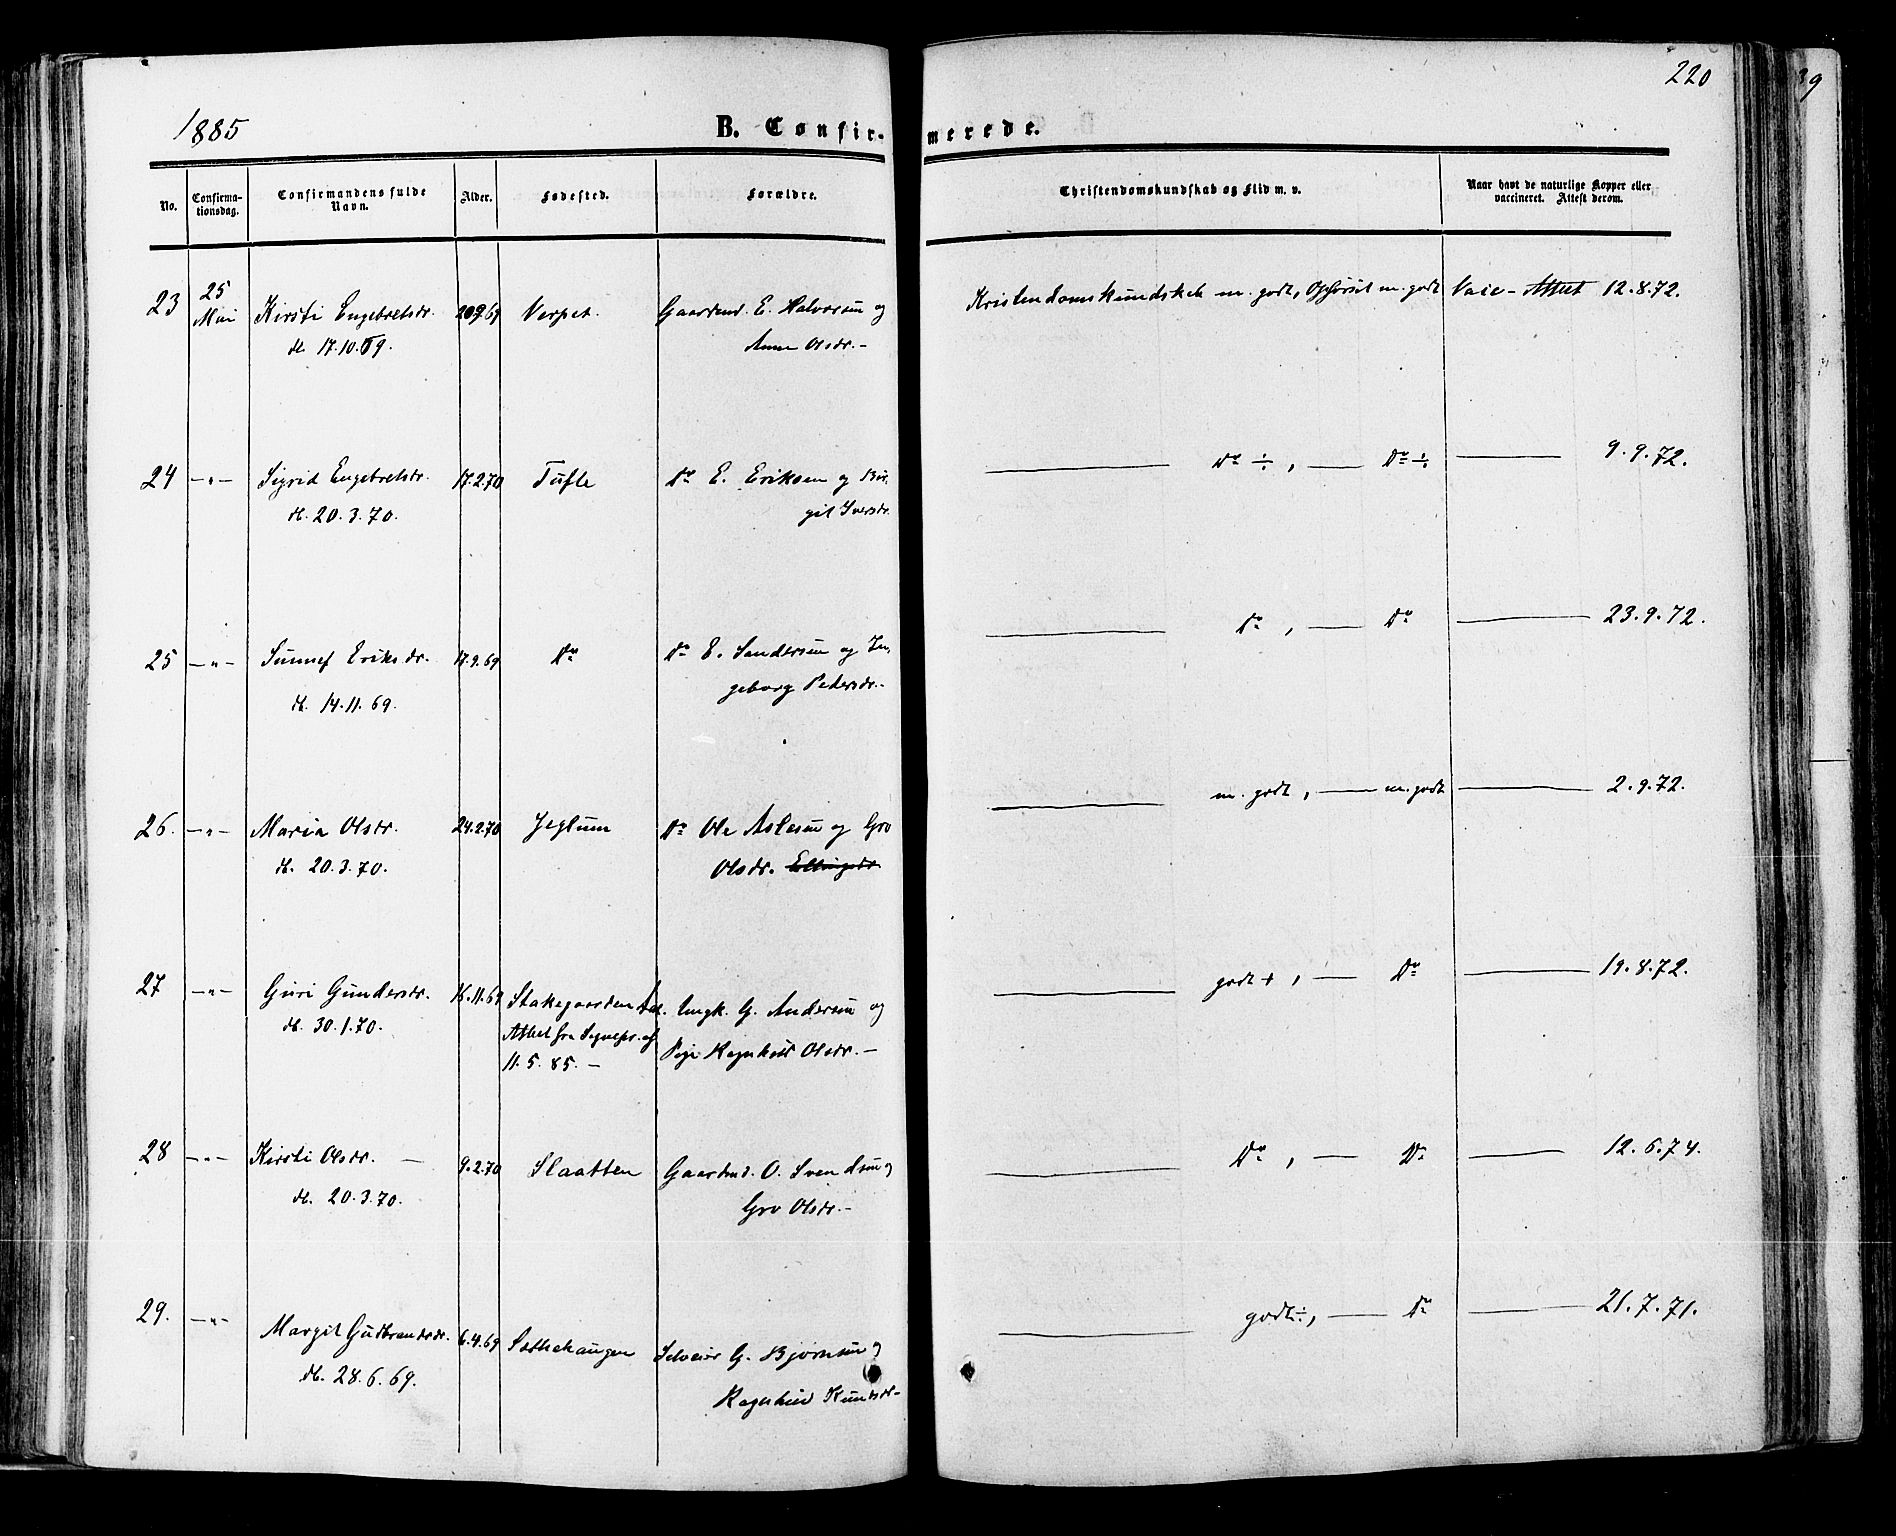 220
39
1885
B. Confirmerede.
No.
Confirmationsdag.
Confirmandens fulde Navn.
Alder.
Fødested.
Forældre.
Christendomskundskab og Flid m. v.
Naar havt de naturlige Kopper eller vaccineret. Attest derom.
23 25 Mai Kirsti Engebretsdr. 69 Verpet Gaardmd. E. Halvorsen og Kristendomskundskab m. godt, m. godt Vacc-Attest 12.8.72.
db. 17.10.69. Anne Olsdr. –
24 –„– Sigrid Engebretsdr. 17.2.70 Tufte Do E. Eriksen og Bir- Do ÷, — Do ÷ — 9.9.72.
db. 20.3.70. git Iversdr.
25 –„– Sunnef Eriksdr. 17.9.69 Do Do E. Sandersen og In- Do, — Do — 23.9.72.
db. 14.11.69. geborg Pedersdr. –
26. –„– Maria Olsdr. 24.2.70 Jeglum Do Ole Aslesen og Gro m. godt, — m. godt — 2.9.72.
db. 20.3.70. Olsdr. Ellingsdr.
27 –„– Guri Gundersdr. 16.11.69 Stakegaarden Aal. Ungk. G. Andersen og godt +, — Do — 19.8.72.
db. 30.1.70. Attest fra Sognepr. af Pige Ragnhild Olsdr. –
11.5.85. –
28 –„– Kirsti Olsdr. — 9.2.70 Slaatten Gaardmd. O. Svendsen og Do, — Do — 12.6.74.
db. 20.3.70. Gro Olsdr. –
29. –„– Margit Gudbrandsdr. 6.4.69 Selveier G. Bjørnsen og godt ÷, — Do — 21.7.71.
db. 28.6.69. Ragnhild Knudsdr –